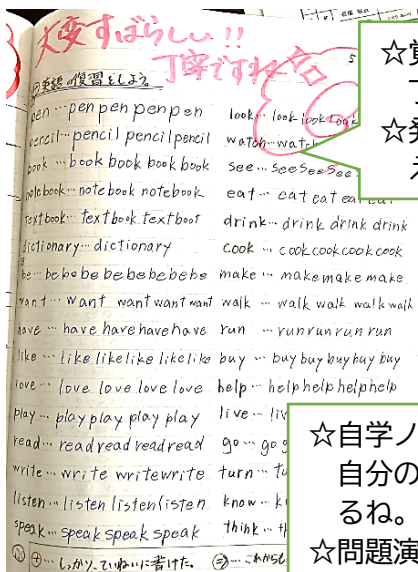 大変すばらしい!!
丁寧ですね
英語の復習をしよう
pen…pen pen pen pen
pencil…pencil pencil pencil
book…book book book book
notebook…notebook notebook
textbook…textbook textboot
dictionary…dictionary
be…be be be be be be be be
want…want want want want
have…have have have have
like…like like like like like
love…love love love love
play…play play play play
read…read read read read
write…write write write
listen…listen listen listen
speak…speak speak speak
⊕…しっかり、ていねいに書けた。
look…look look look
watch…watch
see…see see see
eat…eat eat eat
drink…drink drink drink
cook…cook cook cook cook
make…make make make
walk…walk walk walk walk
run…run run run run
buy…buy buy buy buy buy
help…help help help help
live…liv
go…go g
turn…tu
know…k
think…th
⇒…これからも
☆
☆
☆自学ノ
自分の
るね。
☆問題演